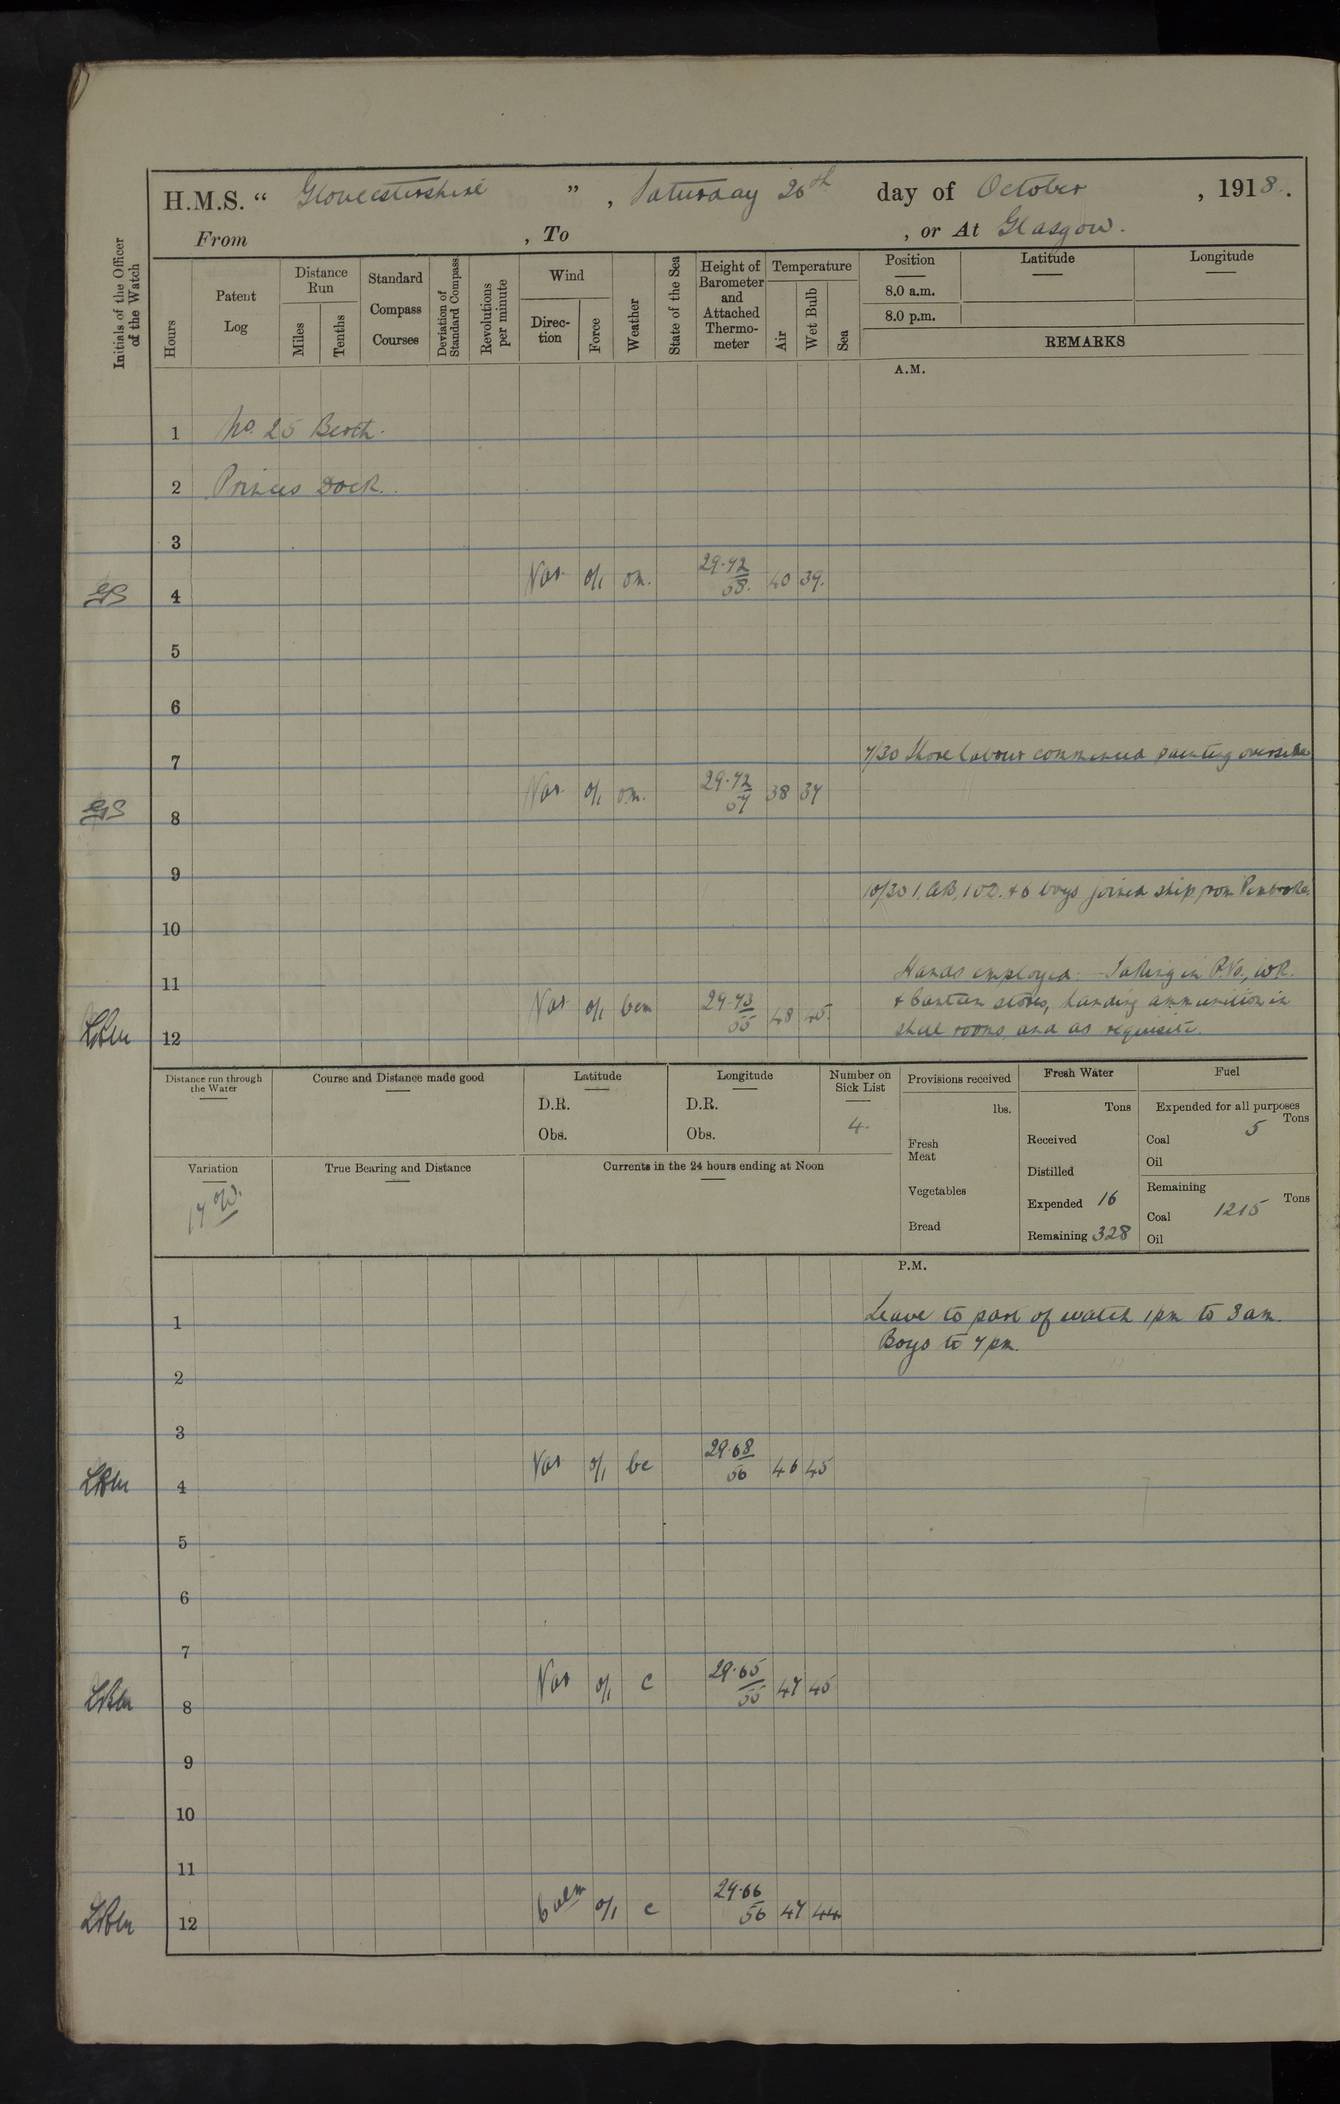 H.M.S. “ Gloucestershire ” , Saturday 26th day of October , 1918.
From , To , or At Glasgow.
Initials of the Officer of the Watch
Hours
Patent Log
Distance Run
Miles
Tenths
Standard Compass Courses
Deviation of Standard Compass
Revolutions per minute
Wind
Direction
Force
Weather
State of the Sea
Height of Barometer and Attached Thermometer
Temperature
Air
Wet Bulb
Sea
Position
8.0 a.m.
8.0 p.m.
Latitude
Longitude
REMARKS
A.M.
1 No. 25 Berth.
2 Princes Dock.
3
4 Var. 0/1 om. 29.72 58. 40 39.
5
6
7 7/30 Shore labour commenced painting overside
8 Var 0/1 om. 29.72 57 38 37
9
10/30 1, AB, 1 OD. + 6 boys joined ship from Pembroke.
10
Hands employed:- Taking in P.Vs., WR.
11 + Canteen stores, handing ammunition in
12 Var 0/1 bcm 29.73 55 48 45. shell rooms, and as requisite.
Distance run through the Water
Course and Distance made good
Latitude
D.R.
Obs.
Longitude
D.R.
Obs.
Number on Sick List
4.
Provisions received
lbs.
Fresh Meat
Vegetables
Bread
Fresh Water
Tons
Received
Distilled
Expended 16
Remaining 328
Fuel
Expended for all purposes
Tons
Coal 5
Oil
Remaining
Tons
Coal 1215
Oil
Variation
17°W.
True Bearing and Distance
Currents in the 24 hours ending at Noon
P.M.
1 Leave to part of watch 1pm to 8am.
Boys to 7pm.
2
3
4 Var 0/1 bc 29.68 56 46 45
5
6
7
8 Var 0/1 c 29.65 55 47 45
9
10
11
12 Calm 0/1 c 29.66 56 47 44